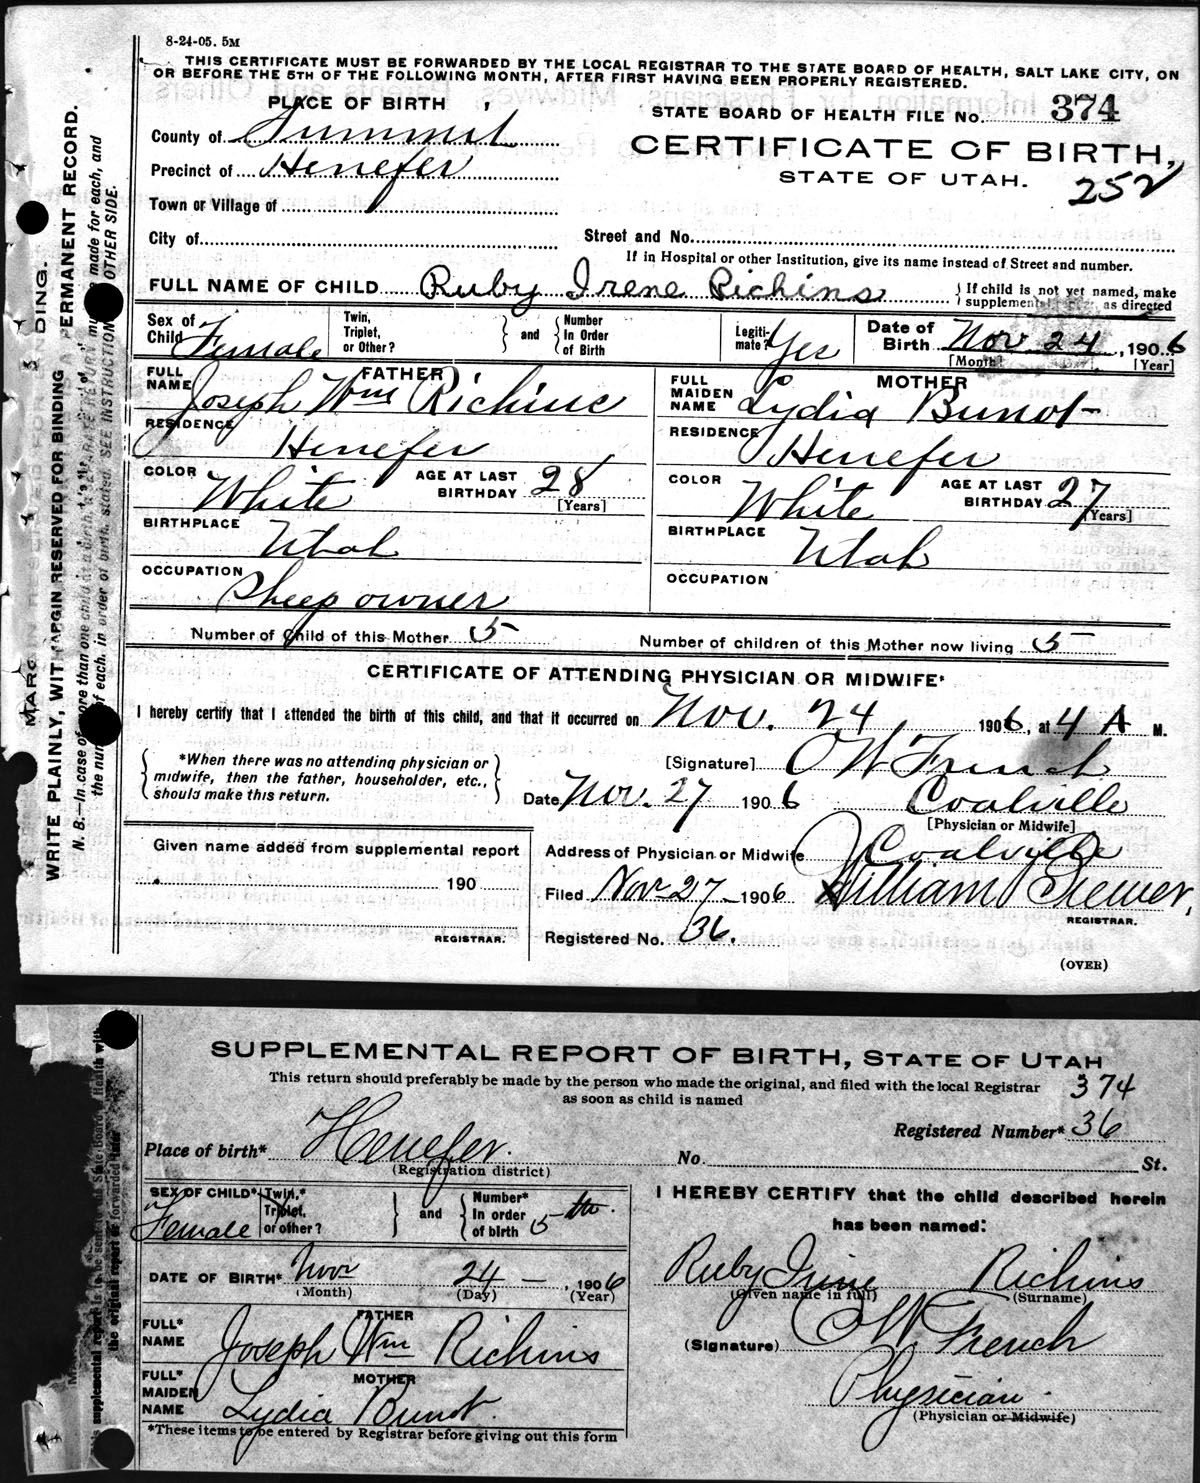 8-24-05. 5M
THIS CERTIFICATE MUST BE FORWARDED BY THE LOCAL REGISTRAR TO THE STATE BOARD OF HEALTH, SALT LAKE CITY, ON
OR BEFORE THE 5TH OF THE FOLLOWING MONTH, AFTER FIRST HAVING BEEN PROPERLY REGISTERED.
PLACE OF BIRTH
STATE BOARD OF HEALTH FILE No. 374
County of Summit
CERTIFICATE OF BIRTH,
Precinct of Henefer
STATE OF UTAH.
252
Town or Village of
City of
Street and No.
If in Hospital or other Institution, give its name instead of Street and number.
FULL NAME OF CHILD Ruby Irene Richins
If child is not yet named, make
supplemental as directed
Sex of Child Female
Twin, Triplet, or Other?
and
Number In Order of Birth
Legiti-mate? Yes
Date of Birth Nov 24, 1906
[Month] [Year]
FATHER
FULL NAME Joseph Wm Richins
MOTHER
FULL MAIDEN NAME Lydia Bunot
RESIDENCE Henefer
RESIDENCE Henefer
COLOR White
AGE AT LAST BIRTHDAY 28 [Years]
COLOR White
AGE AT LAST BIRTHDAY 27 [Years]
BIRTHPLACE Utah
BIRTHPLACE Utah
OCCUPATION Sheep owner
OCCUPATION
Number of Child of this Mother 5
Number of children of this Mother now living 5
CERTIFICATE OF ATTENDING PHYSICIAN OR MIDWIFE*
I hereby certify that I attended the birth of this child, and that it occurred on Nov. 24, 1906, at 4 A M.
*When there was no attending physician or
midwife, then the father, householder, etc.,
should make this return.
[Signature] O W French
Date Nov. 27 1906 Coalville
[Physician or Midwife]
Given name added from supplemental report
190
REGISTRAR.
Address of Physician or Midwife Coalville
Filed Nov 27 1906 William Brewer,
REGISTRAR.
Registered No. 36.
(OVER)
WRITE PLAINLY, WITH MARGIN RESERVED FOR BINDING A PERMANENT RECORD.
SUPPLEMENTAL REPORT OF BIRTH, STATE OF UTAH
This return should preferably be made by the person who made the original, and filed with the local Registrar
as soon as child is named
374
Registered Number* 36
Place of birth* Henefer.
(Registration district)
No. St.
SEX OF CHILD* Female
Twin,* Triplet, or other?
and
Number* In order of birth 5th.
I HEREBY CERTIFY that the child described herein
has been named:
DATE OF BIRTH* Nov 24, 1906
(Month) (Day) (Year)
Ruby Irine Richins
(Given name in full) (Surname)
FATHER
FULL* NAME Joseph Wm Richins
(Signature) O W French
MOTHER
FULL* MAIDEN NAME Lydia Bunot.
Physician.
(Physician or Midwife)
*These items to be entered by Registrar before giving out this form